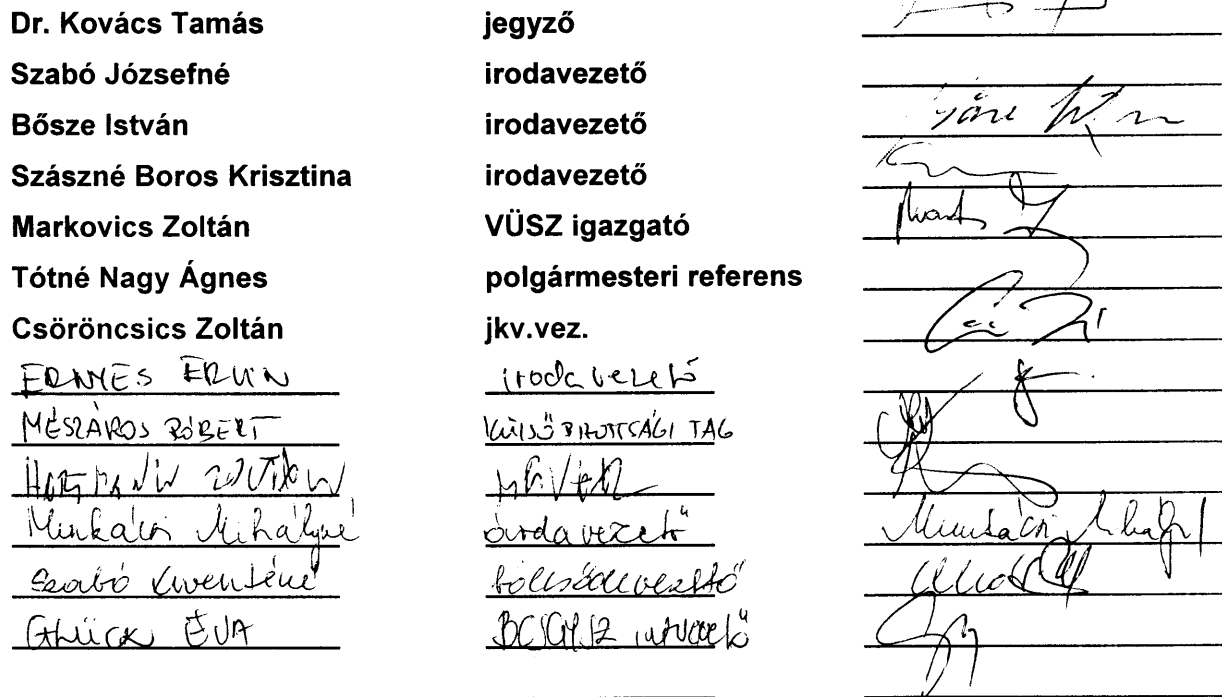 Dr. Kovács Tamás jegyző
Szabó Józsefné irodavezető
Bősze István irodavezető
Szászné Boros Krisztina irodavezető
Markovics Zoltán VÜSZ igazgató
Tótné Nagy Ágnes polgármesteri referens
Csöröncsics Zoltán jkv.vez.
ERNYES ERVIN irodavezető
MÉSZÁROS RÓBERT KÜLSŐ BIZOTTSÁGI TAG
ZOLTÁN
Munkácsi Mihályné óvodavezető Munkácsi Mihályné
Szabó bölcsődevezető
GLÜCK ÉVA BCSGYSZ intvezető